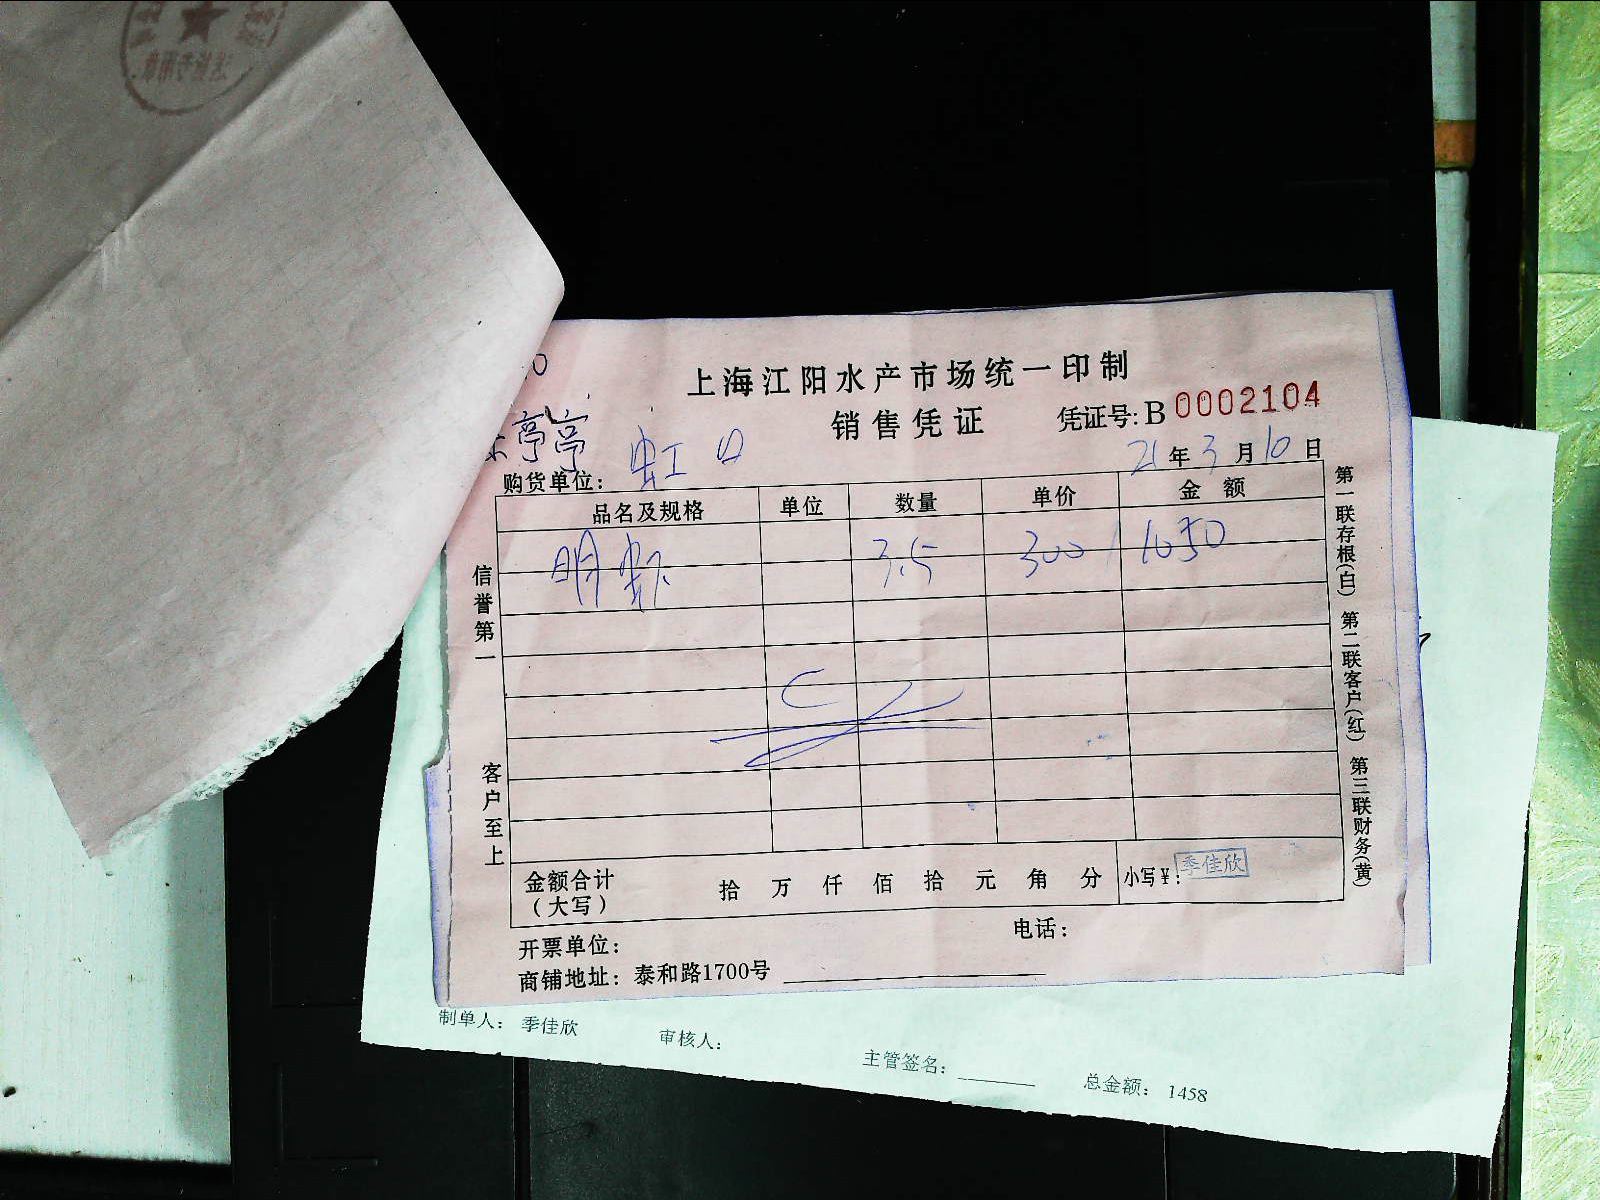 上海江阳水产市场统一印制
销售凭证 凭证号: B 0002104
亭亭
购货单位: 虹口 21年3月10日
品名及规格 单位 数量 单价 金额
明虾 3.5 300 1050
信誉第一
客户至上
第一联存根(白) 第二联客户(红) 第三联财务(黄)
金额合计(大写) 拾 万 仟 佰 拾 元 角 分 小写¥: 季佳欣
开票单位: 电话:
商铺地址: 泰和路1700号
制单人: 季佳欣 审核人: 主管签名: 总金额: 1458